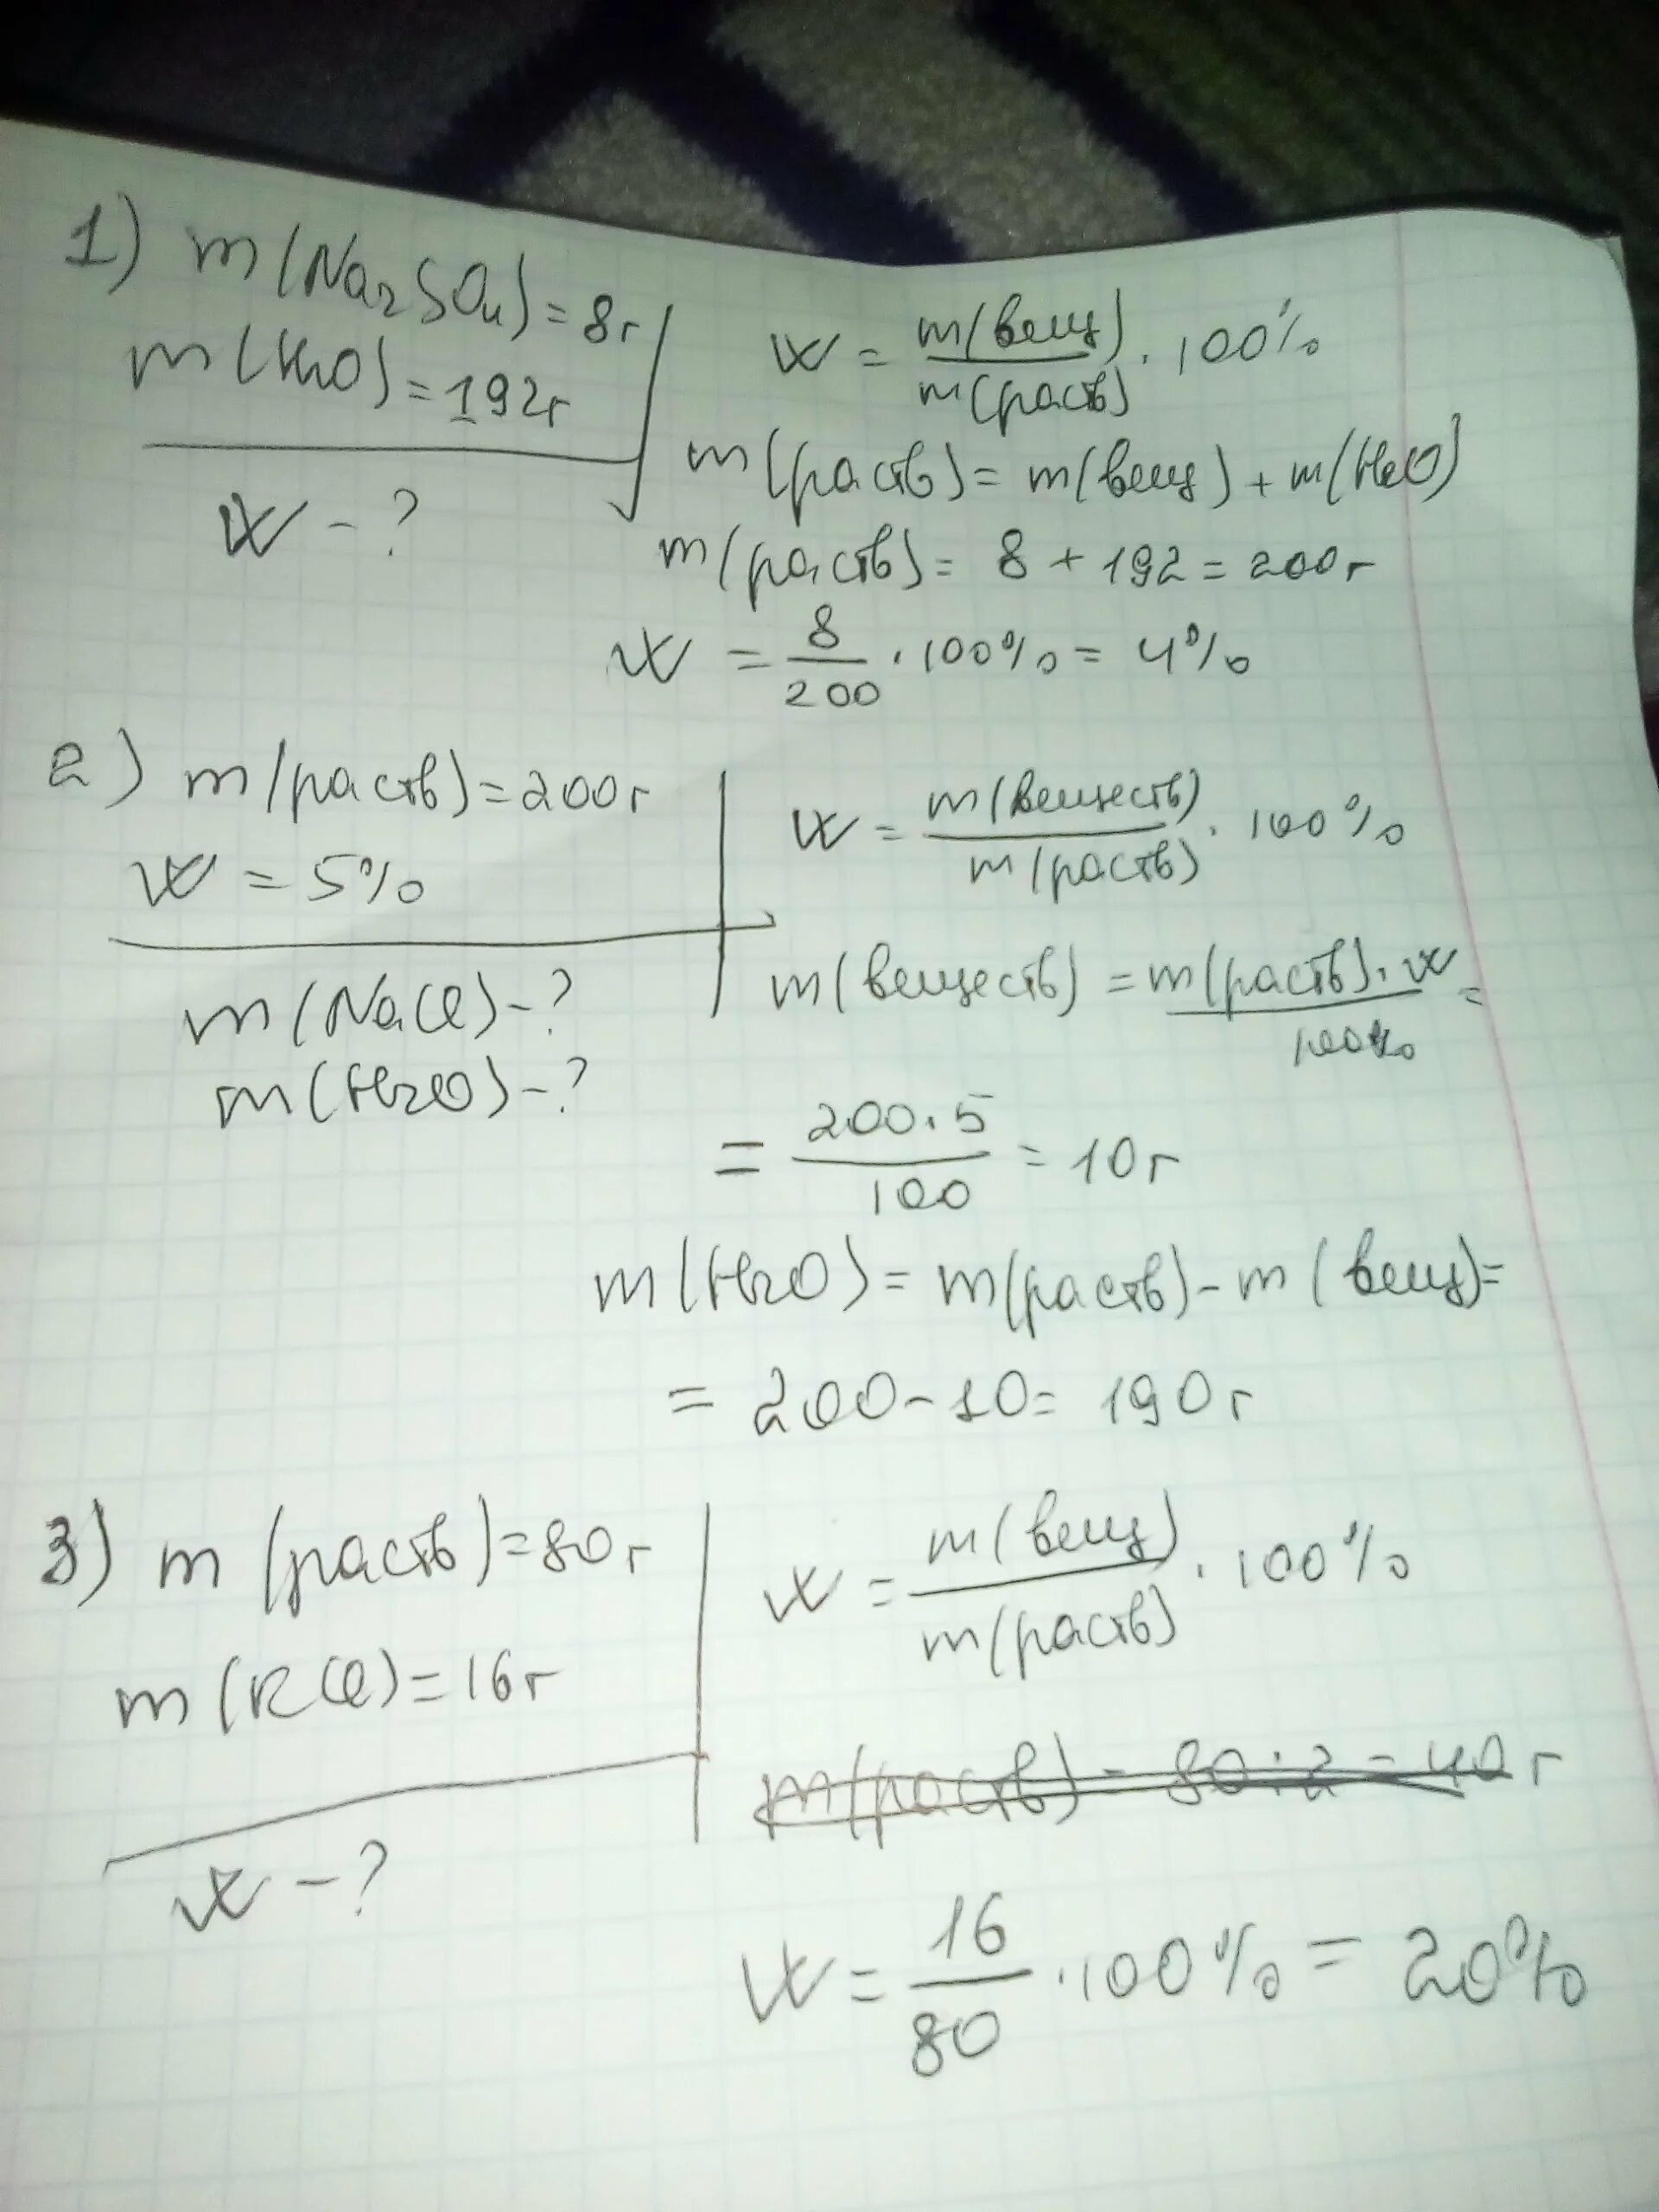 1) m(Na2SO4)=8г
m(H2O)=192г
W-?
W = m(вещ)/m(раств) · 100%
m(раств)= m(вещ)+m(H2O)
m(раств)= 8+192=200г
W = 8/200 · 100%= 4%
2) m(раств)=200г
W = 5%
m(NaCl)-?
m(H2O)-?
W = m(веществ)/m(раств) · 100%
m(веществ) = m(раств)·W/100% =
= 200·5/100 = 10г
m(H2O)= m(раств)-m(вещ)=
= 200-10= 190г
3) m(раств)=80г
m(KCl)=16г
W-?
W = m(вещ)/m(раств) · 100%
m(раств)= 80:2=40г
W = 16/80 · 100% = 20%